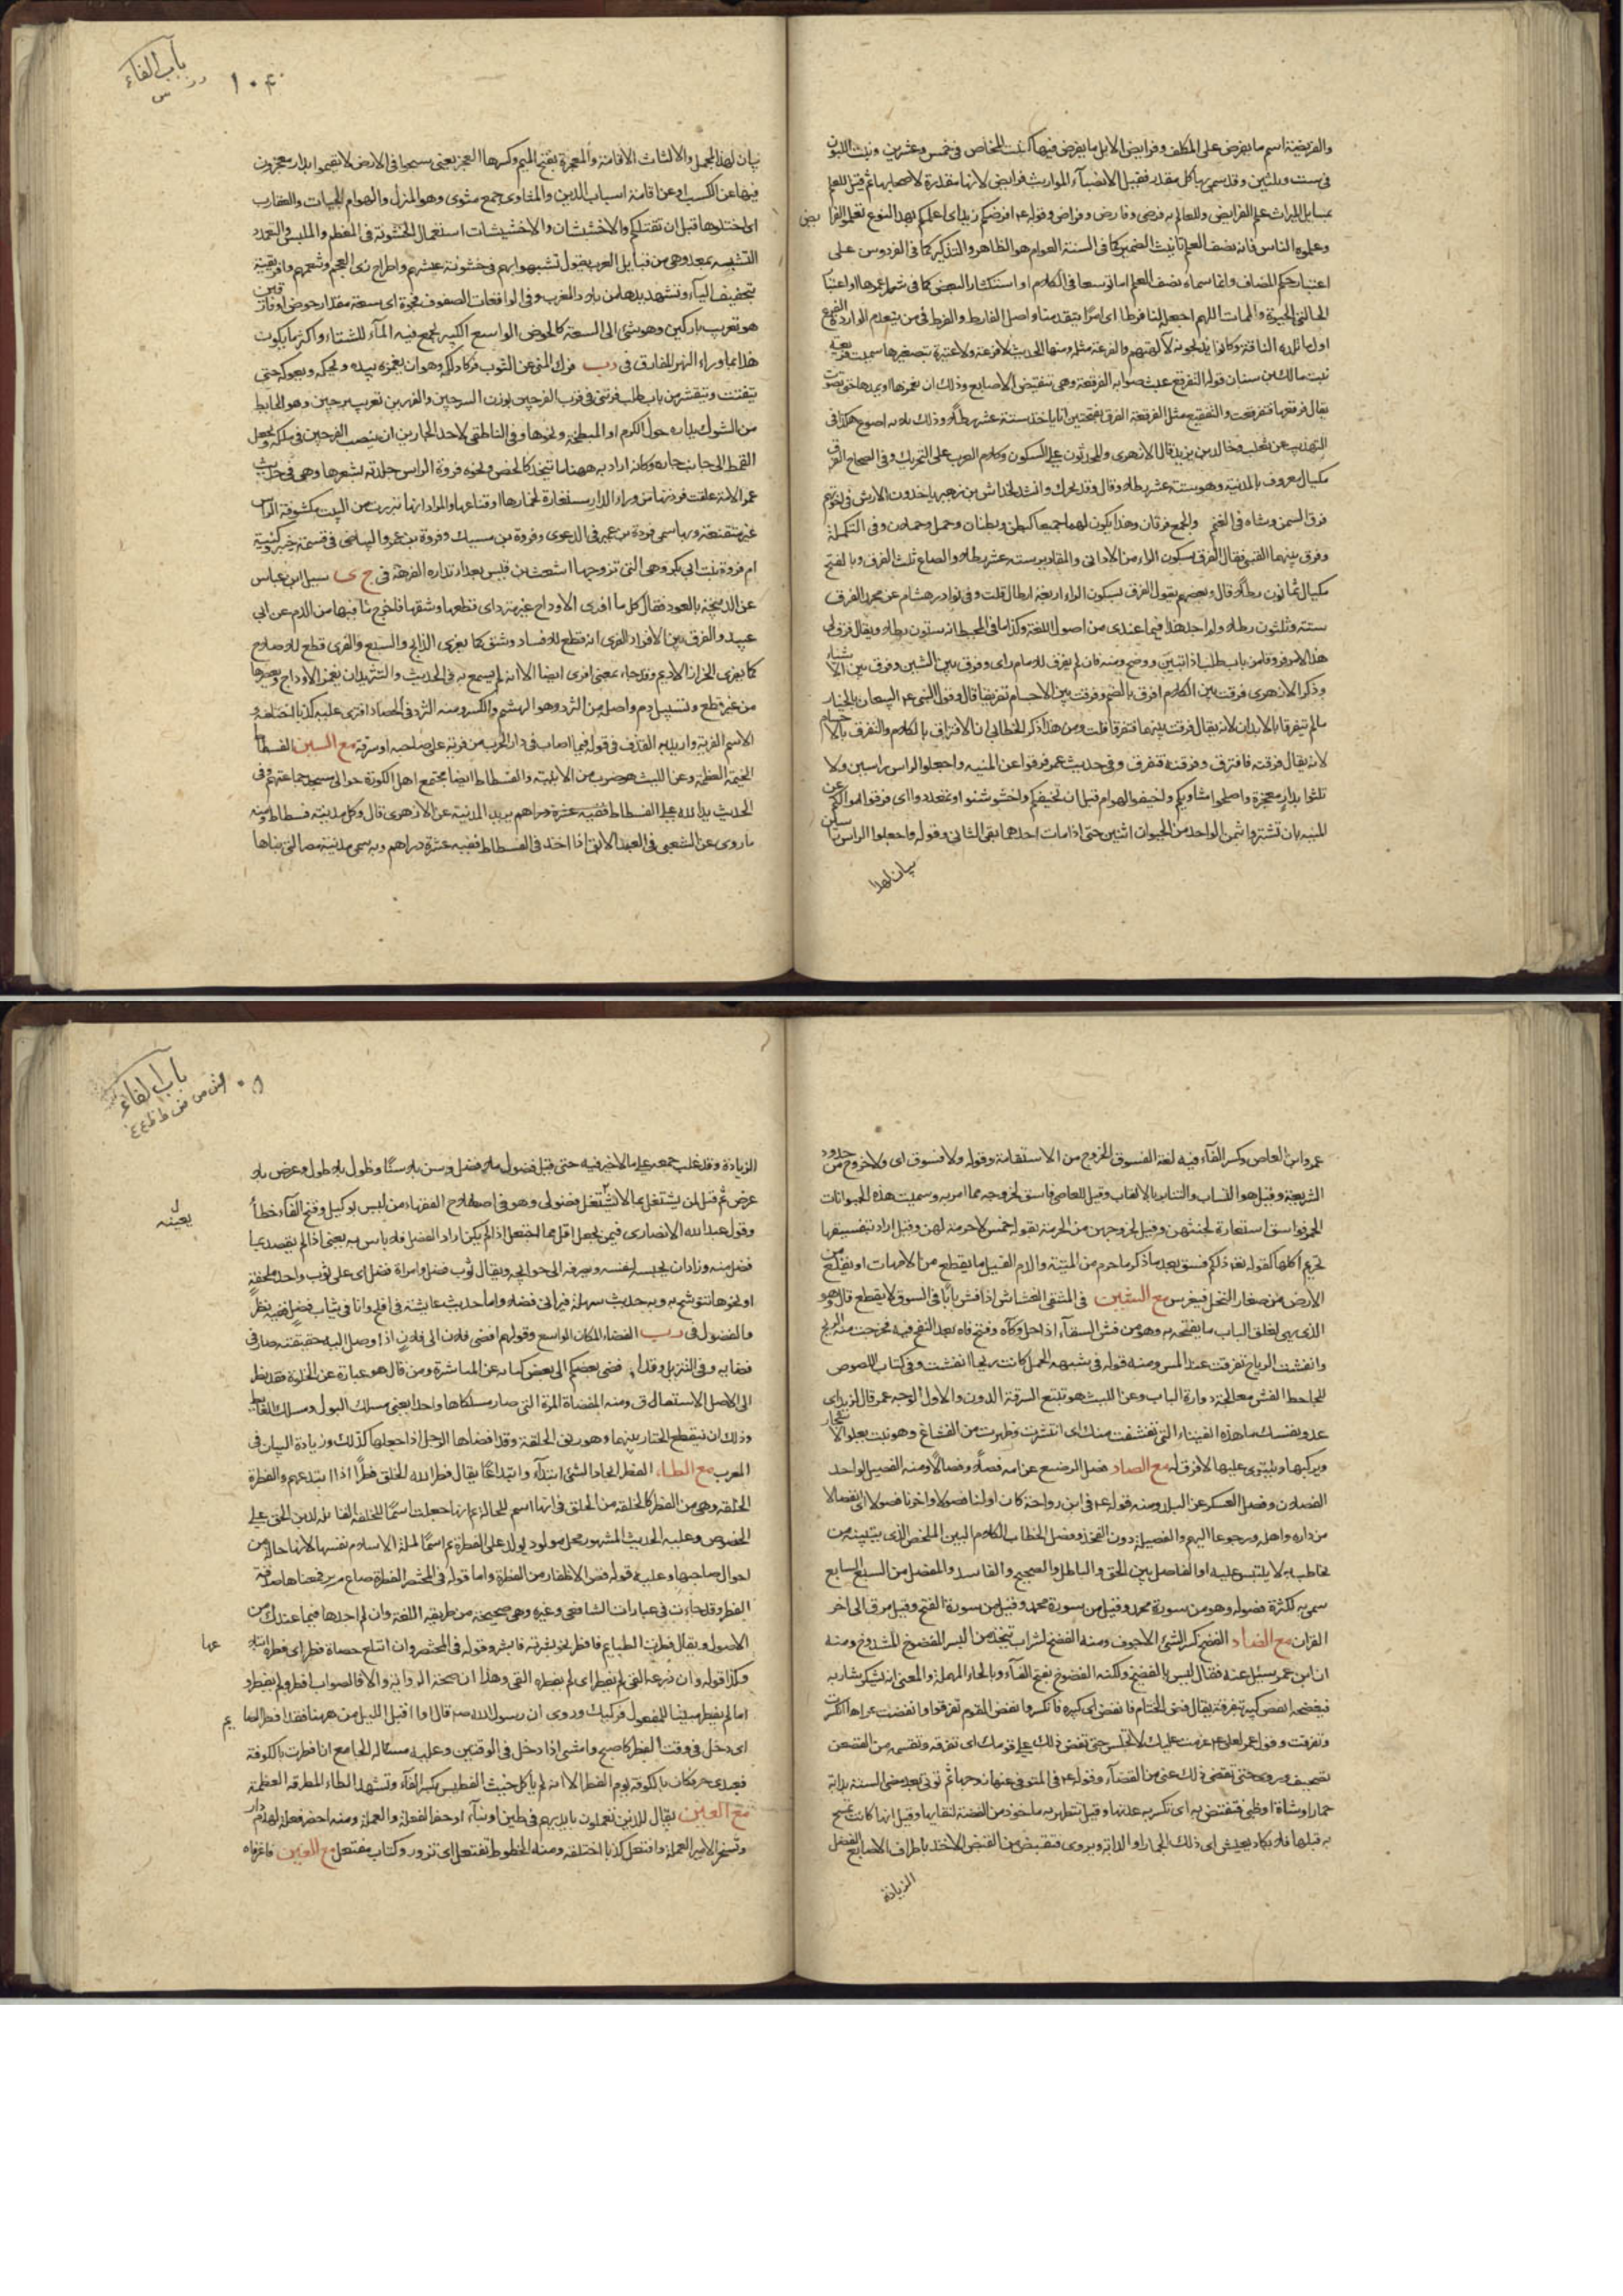 والفريضة اسم ما يفرض على المكلف وفرايض الابل ما يفرض فيها كبنت المخاض في خمس وعشرين وبنت اللبون
في ست وثلثين وقد سمي بها كل مقدر فقيل لانصباء المواريث فرايض لانها مقدرة لاصحابها ثم قيل للعلم
بمسايل الميراث علم الفرايض وللعالم به فرضي وفارض وفراض وقوله افرضكم زيد اي اعلمكم بهذا النوع تعلموا الفرا يض
وعلموه الناس فانه نصف العلم تانيث الضمير كما في السنة العوام هو الظاهر والتذكير كما في الفردوس على
اعتبار حكم المضاف وانما سماه نصف العلم اما توسعا في الكلام او استكثارا للبعض كما في شطر عمرها او اعتبارا
لحالتي الحيوة والممات اللهم اجعله لنا فرطا اي اجرا يتقدمنا واصل الفارط والفرط فيمن يتقدم الواردة الفرع
اول ما تلده الناقة وكانوا يذبحونه لآلهتهم والفرعة مثله ومنها الحديث لا فرعة ولا عتيرة
بنت مالك بن سنان قوله التفرقع عبث صوابه الفرقعة وهي تنقيض الاصابع وذلك ان يغمزها او يمدها حتى تصوت
يقال فرقعها فتفرقعت والتفقيع مثل الفرقعة الفرق بفتحتين اناء ياخذ ستة عشر رطلا وذلك ثلاثة اصوع هكذا في
التهذيب عن ثعلب وخالد بن يزيد قال الازهري والمحدثون على السكون وكلام العرب على التحريك وفي الصحاح الفرق
مكيال معروف بالمدينة وهو ستة عشر رطلا وقال وقد يحرك وانشد لخداش بن زهير ياخذون الارش في اخوتهم
فرق السمن وشاة في الغنم والجمع فرقان وهذا يكون لهما جميعا كبطن وبطنان وحمل وحملان وفي التكملة
وفرق بينهما القتبي فقال الفرق بسكون الراء من الاواني والمقادير ستة عشر رطلا والصاع ثلث الفرق وبالفتح
مكيال ثمانون رطلا قال وبعضهم يقول الفرق بسكون الراء اربعة ارطال قلت وفي نوادر هشام عن محمد الفرق
ستة وثلثون رطلا ولم اجد هذا فيما عندي من اصول اللغة وكذا ما في المحيط انه ستون رطلا ويقال فرق لي
هذا الامر فروقا من باب طلب اذا تبين ووضح ومنه فان لم يفرق للامام راي وفرق بين الشيئين وفرق بين الا شياء
وذكر الازهري فرقت بين الكلام افرق بالضم وفرقت بين الاجسام تفريقا قال وقول النبي البيعان بالخيار
ما لم يتفرقا بالابدان لانه يقال فرقت بينهما فتفرقا قلت ومن هذا ذكر الخطابي ان الافتراق بالكلام والتفرق بالا جسام
لانه يقال فرقته فافترق وفرقته فتفرق وفي حديث عمر فرقوا عن المنية واجعلوا الراس راسين ولا
تلثوا بدار معجزة واصلحوا مثاويكم واخيفوا الهوام قبل ان تخيفكم واخشوشنوا وتمعددوا اي فرقوا اموالكم عن
المنية بان تشتروا بثمن الواحد من الحيوان اثنين حتى اذا مات احدهما بقي الثاني وقوله واجعلوا الراس راسين
بيان لهذا
باب الفاء
ر س
بيان لهذا المجمل والالثاث الاقامة والمعجزة بفتح الميم وكسرها العجز يعني سيحوا في الارض لا تقيموا بدار تعجزون
فيها عن الكسب او عن اقامة اسباب الدين والمثاوي جمع مثوى وهو المنزل والهوام الحيات والعقارب
اي اقتلوها قبل ان تقتلكم والاخشيشان والاخشيشات استعمال الخشونة في المطعم والملبس والتمعدد
التشبه بمعد وهي من قبايل العرب يقول تشبهوا بهم في خشونة عيشهم واطراح زي العجم وتنعمهم وافريقية
بتخفيف الياء وتشديدها من بلاد المغرب وفي الواقعات الصفوف فجوة اي سعة مقدار حوض او فارقين
هو تعريب باركين وهو شيء الى السعة كالحوض الواسع الكبير يجمع فيه الماء للشتاء واكثر ما يكون
هذا بما وراء النهر المفارق في فرك المني عن الثوب فركا دلكه وهو ان يغمزه بيده ويحكه ويعركه حتى
يتفتت ويتقشر من باب طلب الفرجين بوزن السرجين تعريب برجين وهو الحايط
من الشوك يدار حول الكرم او المبطخة ونحوها وفي الناطفي لاحد الجارين ان ينصب الفرجين في ملكه ويجعل
القمط الى جانب جاره وكانه اراد به ههنا ما يتخذ كالخص ونحوه فروة الراس جلدته بشعرها وهي في حديث
عمر الامة القت فروتها من وراء الدار مستعارة لخمارها او قناعها والمراد انها تبرز من البيت مكشوفة الراس
غير متقنعة وبها سمي فروة بن عمير في الدعوى وفروة بن مسيك وفروة بن عمرو البياضي في قسمة خيبر وكنية
ام فروة بنت ابي بكر وهي التي تزوجها اشعث بن قيس بعد ارتداده الفرهة في سيل ابن عباس
عن الذبيحة بالعود فقال كل ما افرى الاوداج غير مثرد اي قطعها وشقها فاخرج ما فيها من الدم عن ابي
عبيد والفرق بين الافراء والفري انه قطع للافساد وشق كما يفري الذابح والسبع والفري قطع للاصلاح
كما يفري الخراز الاديم وقد جاء بمعنى افرى ايضا الا انه لم يسمع به في الحديث والتثريد ان يغمز الاوداج ويعصرها
من غير قطع وتسييل دم واصله من الثرد وهو الهشم والكسر ومنه الثرد في الخصاء افترى عليه كذبا اختلقه و
الاسم الفرية واريد به القذف في قوله فيما اصاب في دار الحرب من فرية على صاحبه او سرقة مع السين الفسطاط
الخيمة العظيمة وعن الليث هو ضرب من الابنية والفسطاط ايضا مجتمع اهل الكورة حوالى مسجد جماعتهم وفي
الحديث يد الله على الفسطاط يريد المدينة عن الازهري قال وكل مدينة فسطاط ومنه
ما روي عن الشعبي في العبد الابق اذا اخذ في الفسطاط ففيه عشرة دراهم وبه سمي مدينة مصر التي بناها
عمرو بن العاص وكسر الفاء فيه لغة الفسوق الخروج من الاستقامة وقوله ولا فسوق اي ولا خروج من حدود
الشريعة وقيل هو السباب والتنابز بالالقاب وقيل للعاصي فاسق لخروجه مما امر به وسميت هذه الحيوانات
الخمس فواسق استعارة لخبثهن وقيل لخروجهن من الحرمة بقوله خمس لا حرمة لهن وقيل اراد بتفسيقها
تحريم اكلها كقوله ذلكم فسق بعد ما ذكر ما حرم من الميتة والدم الفسيل ما يقطع من الامهات او يقلع من
الارض من صغار النخل فيغرس مع الشين في المنتقى الفشاش اذا فش بابا في السوق لا يقطع قال وهو
الذي يهيئ لغلق الباب ما يفتحه به وهو من فش السقاء اذا حل وكاءه وفتح فاه بعد النفخ فيه فخرجت منه الريح
وانفشت الرياح تفرقت عند المس ومنه قوله في شبهة الحمل كانت ريحا انفشت وفي كتاب اللصوص
للجاحظ الفش معالجة دوارة الباب وعن الليث هو تتبع السرقة الدون والاول الوجه عمر قال لزيد اي
عدو نفسك ما هذه الفتياء التي تفشغت منك اي انتشرت وظهرت من الفشاغ وهو نبت يعلو الا شجار
ويركبها ويلتوي عليها لا ورق له مع الصاد فصل الرضيع عن امه فصلا وفصالا ومنه الفصيل لواحد
الفصلان وفصل العسكر عن البلد ومنه قوله في ابن رواحة كان اولنا فصولا واخرنا قفولا اي انفصالا
من داره واهله ورجوعا اليهم والفصيلة دون الفخذ وفصل الخطاب الكلام البين الملخص الذي يتبينه من
يخاطب به لا يلتبس عليه او الفاصل بين الحق والباطل والصحيح والفاسد والمفصل من السبع السابع
سمي به لكثرة فصوله وهو من سورة محمد وقيل من سورة الفتح وقيل من ق الى اخر
القران مع الضاد الفضخ كسر الشيء الاجوف ومنه الفضيخ لشراب يتخذ من البسر المفضوخ المشدوخ ومنه
ان ابن عمر سئل عنه فقال ليس بالفضيخ ولكنه الفضوح بفتح الفاء وبالحاء المهملة والمعنى انه يسكر شاربه
فيفضحه الفض كسر بتفرقة يقال فض الختام فانفض اي كسره فانكسر وانفض القوم تفرقوا وانفضت عراها انكسرت
وتفرقت وقول عمر لعلي عزمت عليك لا تجلس حتى تفض ذلك على قومك اي تفرقه وتقسمه من القصص
تصحيف وروي حتى تقضي ذلك عني من القضاء وقوله في المتوفى عنها زوجها ثم تؤتى بعد مضي السنة بدابة
حمار او شاة او ظبي فتفتض به اي تكسر به عدتها وقيل تتطهر به ماخوذ من الفضة لنقايها وقيل انها كانت تمسح
به قبلها فلا يكاد يعيش اي ذلك الحمار او الدابة ويروى فتقبض من القبض الاخذ باطراف الاصابع الفضل
الزيادة
باب الفاء
ش ص ض ط ظ ع غ
الزيادة وقد غلب جمعه على ما لا خير فيه حتى قيل فضول بلا فضل وسن بلا سنا وطول بلا طول وعرض بلا
عرض ثم قيل لمن يشتغل بما لا يعنيه فضولي وهو في اصطلاح الفقهاء من ليس بوكيل وفتح الفاء خطأ
يعنيه
وقول عبد الله الانصاري فيمن يجعل اقل مما اجتعل اذا لم يكن اراد الفضل فلا باس به يعني اذا لم يقصد بما
فضل منه وزاد ان يحبسه لنفسه ويصرفه الى حوايجه ويقال ثوب فضل وامراة فضل اي على ثوب واحد ملحفة
او نحوها تتوشح به وبه حديث سهلة فيراني فضلا واما حديث عايشة في افلح وانا في ثياب فضل ففيه نظر
الفضاء المكان الواسع وقولهم افضى فلان الى فلان اذا وصل اليه حقيقته صار في
فضايه وفي التنزيل وقد افضى بعضكم الى بعض كناية عن المباشرة ومن قال هو عبارة عن الخلوة فقد نظر
الى الاصل ومنه المفضاة المرأة التي صار مسلكاها واحدا يعني مسلك البول ومسلك الغايط
وذلك ان ينقطع الحتار بينهما وهو زيق الحلقة وقد افضاها الرجل اذا جعلها كذلك وزيادة البيان في
المعرب مع الطاء الفطر ايجاد الشيء ابتداء وابتداعا يقال فطر الله الخلق فطرا اذا ابتدعهم والفطرة
الخلقة وهي من الفطر كالخلقة من الخلق في انها اسم للحالة ثم انها جعلت اسما للخلقة القابلة لدين الحق على
الخصوص وعليه الحديث المشهور كل مولود يولد على الفطرة ثم اسما لملة الاسلام نفسها لانها حالة من
احوال صاحبها وعليه قوله قص الاظفار من الفطرة واما قوله في المختصر الفطرة صاع من بر فمعناها صدقة
الفطر وقد جاءت في عبارات الشافعي وغيره وهي صحيحة من طريق اللغة وان لم اجدها فيما عندنا من
الاصول ويقال فطرت الصايم فافطر نحو بشرته فابشر وقوله في المختصر وان ابتلع حصاة فطر اي فطره ابتلا عها
وكذا قوله وان ذرعه القيء لم يفطر اي لم يفطره القيء وهذا ان صحت الرواية والا فالصواب افطر ولم يفطر و
اما لم يفطر مبنيا للمفعول فركيك وروي ان رسول الله قال اذا اقبل الليل من ههنا فقد افطر الصا يم
اي دخل في وقت الفطر كاصبح وامسى اذا دخل في الوقتين وعليه مسئلة الجامع ان افطرت بالكوفة
فعبدي حر فكان بالكوفة يوم الفطر الا انه لم ياكل حيث الفطيس بكسر الفاء وتشديد الطاء المطرقة العظيمة
مع العين يقال للذين يعملون بايديهم في طين او بناء او حفر الفعلة والعملة ومنه احضر فعلة لهدم دار
وتسخر الامير العملة وافتعل كذبا اختلقه ومنه الخطوط تفتعل اي تزور وكتاب مفتعل مع الغين فاغرفاه